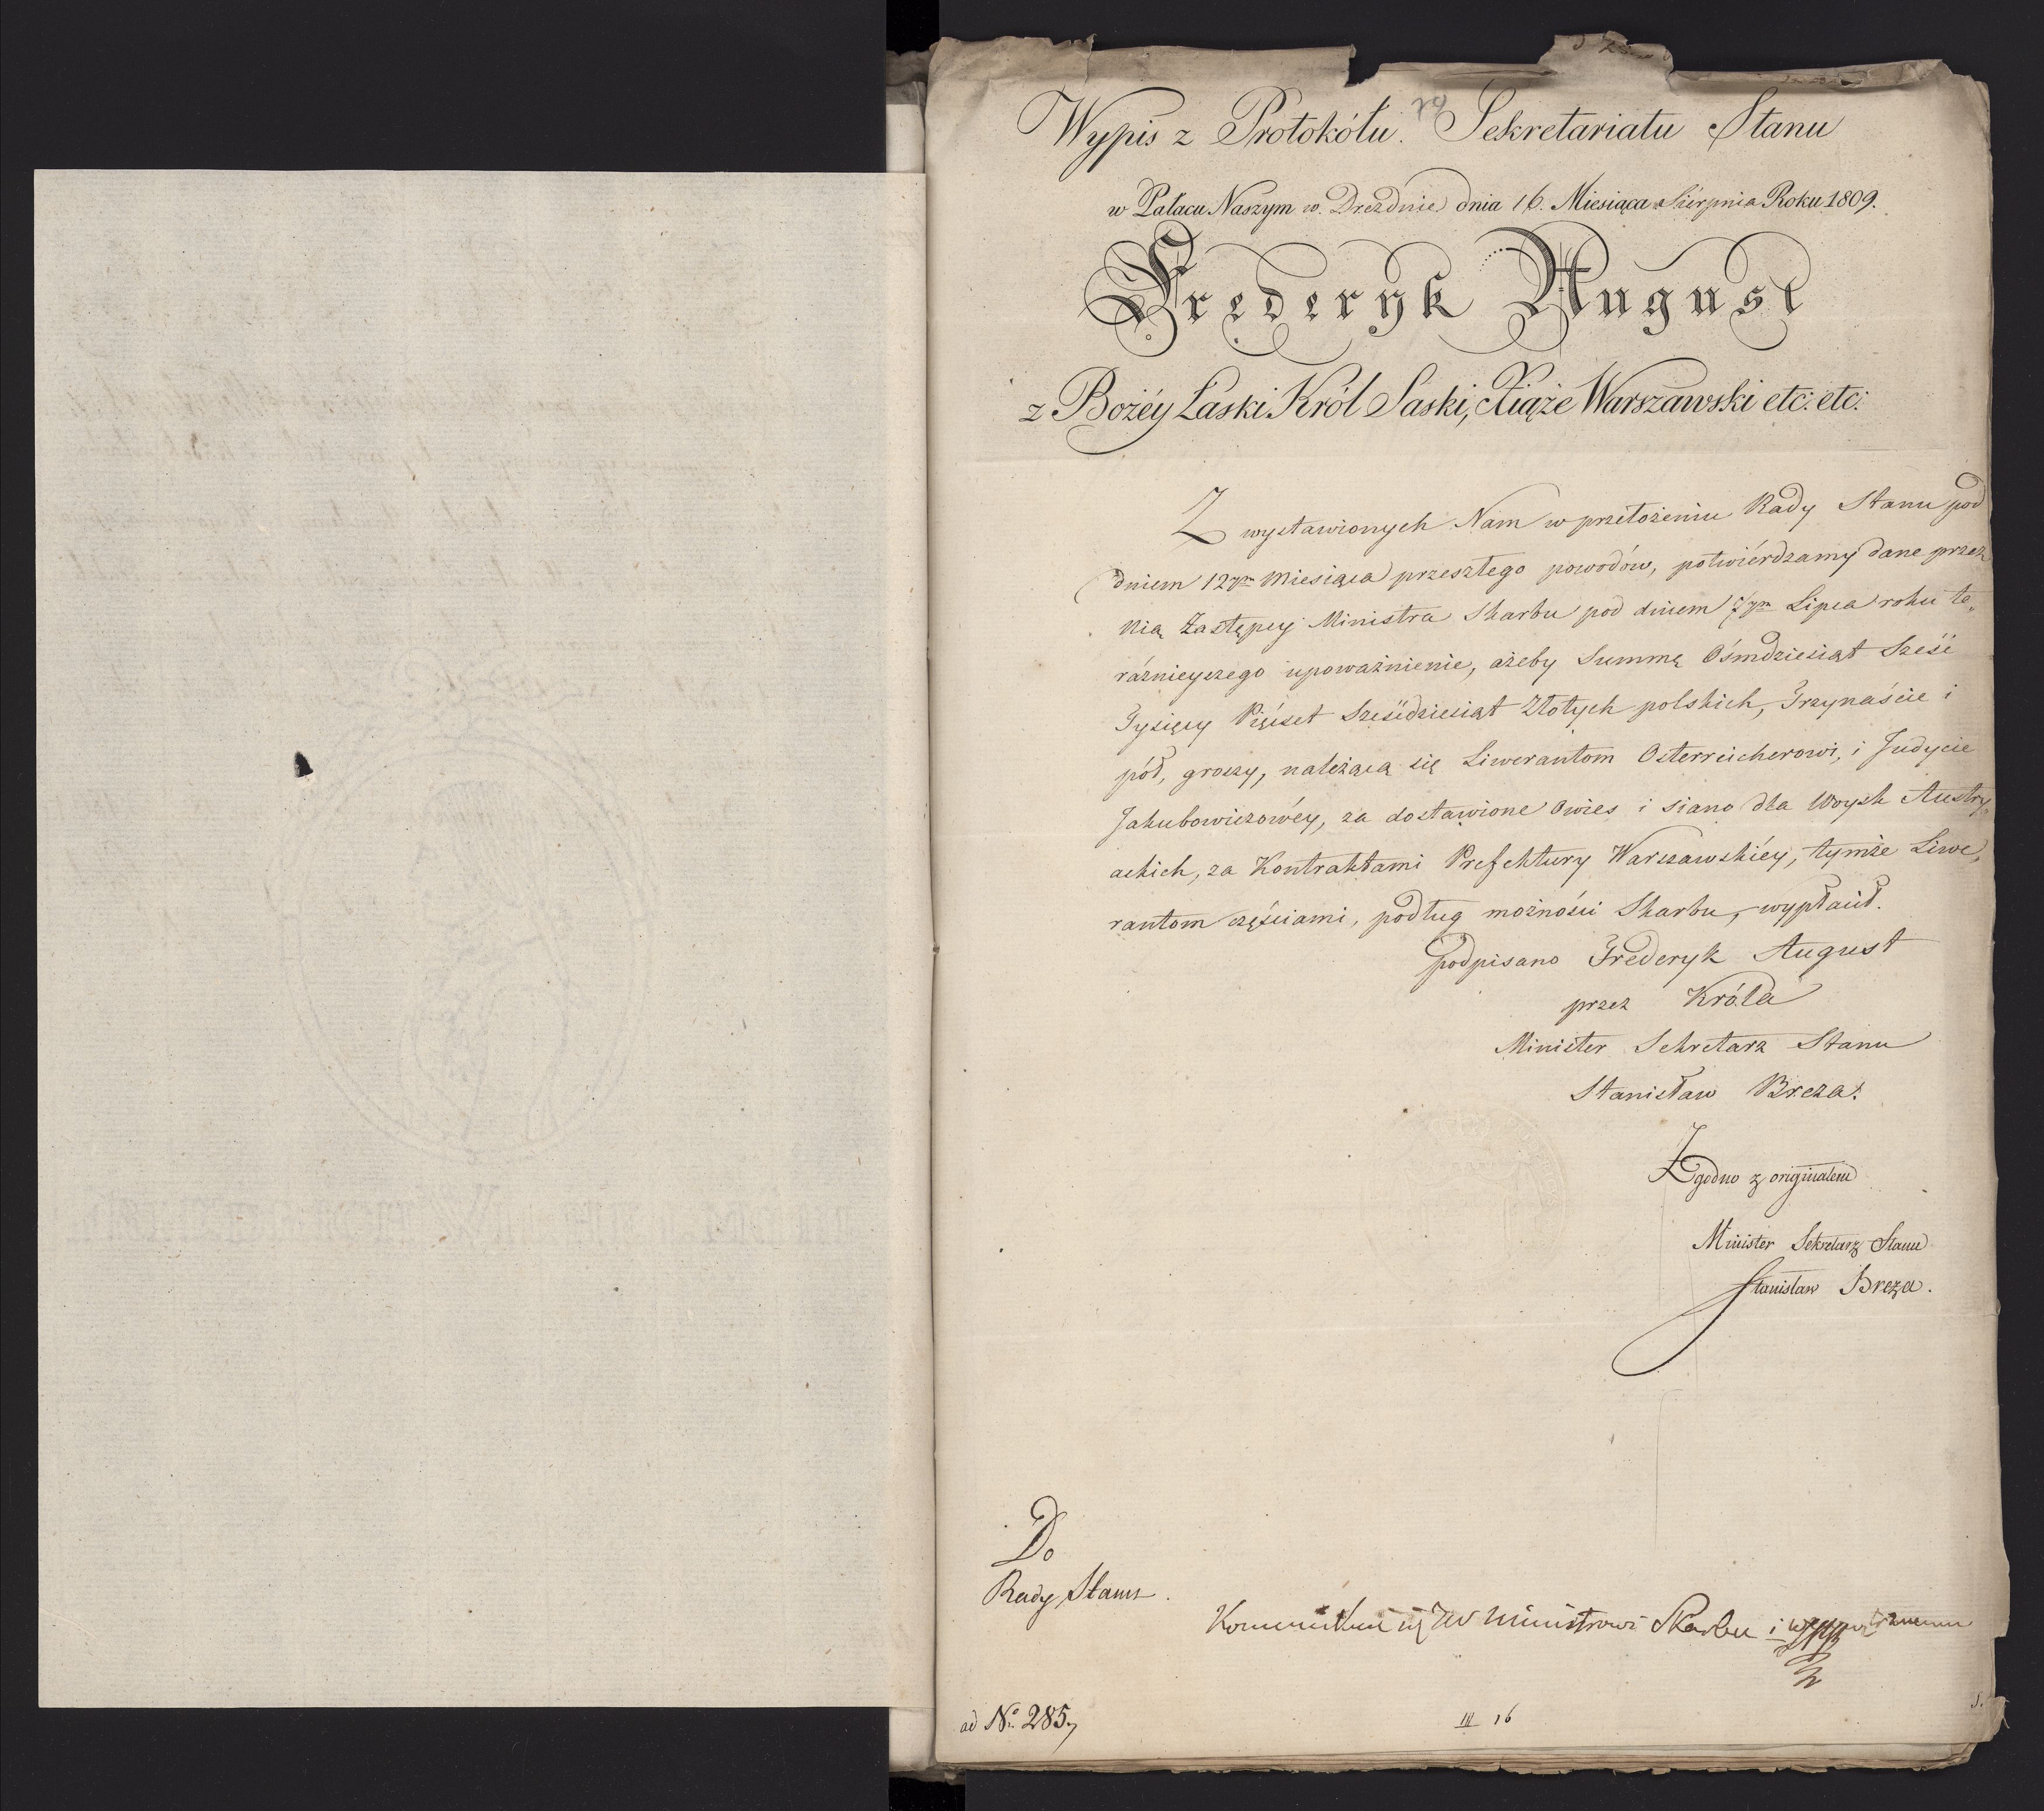 Wypis z Protokółu Sekretariatu Stanu
w Pałacu Naszym w Dreznie dnia 16. Miesiąca Sierpnia Roku 1809.
Frederyk August
z Bożéy Łaski Król Saski, Xiąże Warszawski etc: etc:
Z wystawionych Nam w przełożeniu Rady Stanu pod
dniem 12ym Miesiąca przeszłego powodów, potwiérdzamy dane przez
nią Zastępcy Ministra Skarbu pod dniem 7ym Lipca roku te„
ráznieyszego upoważnienie, ażeby Summę Ośmdziesiąt Sześć
Tysięcy Pięćset Sześćdziesiąt Złotych polskich, Trzynaście i
pół, groszy, należącą się Liwerantom Osterreicherowi, i Judycie
Jakubowiczowéy, za dostawione Owies i siano dla Woysk Austry„
ackich, za Kontraktami Prefektury Warszawskiéy, tymże Liwe„
rantom częściami, podług możności Skarbu, wypłacił.
podpisano Frederyk August
przez Króla
Minister Sekretarz Stanu
Stanisław Breza.
Zgodno z originałem
Minister Sekretarz Stanu
Stanisław Breza.
Do
Rady Stanu.
JW Ministrowi Skarbu i
ad No. 285.
III 16